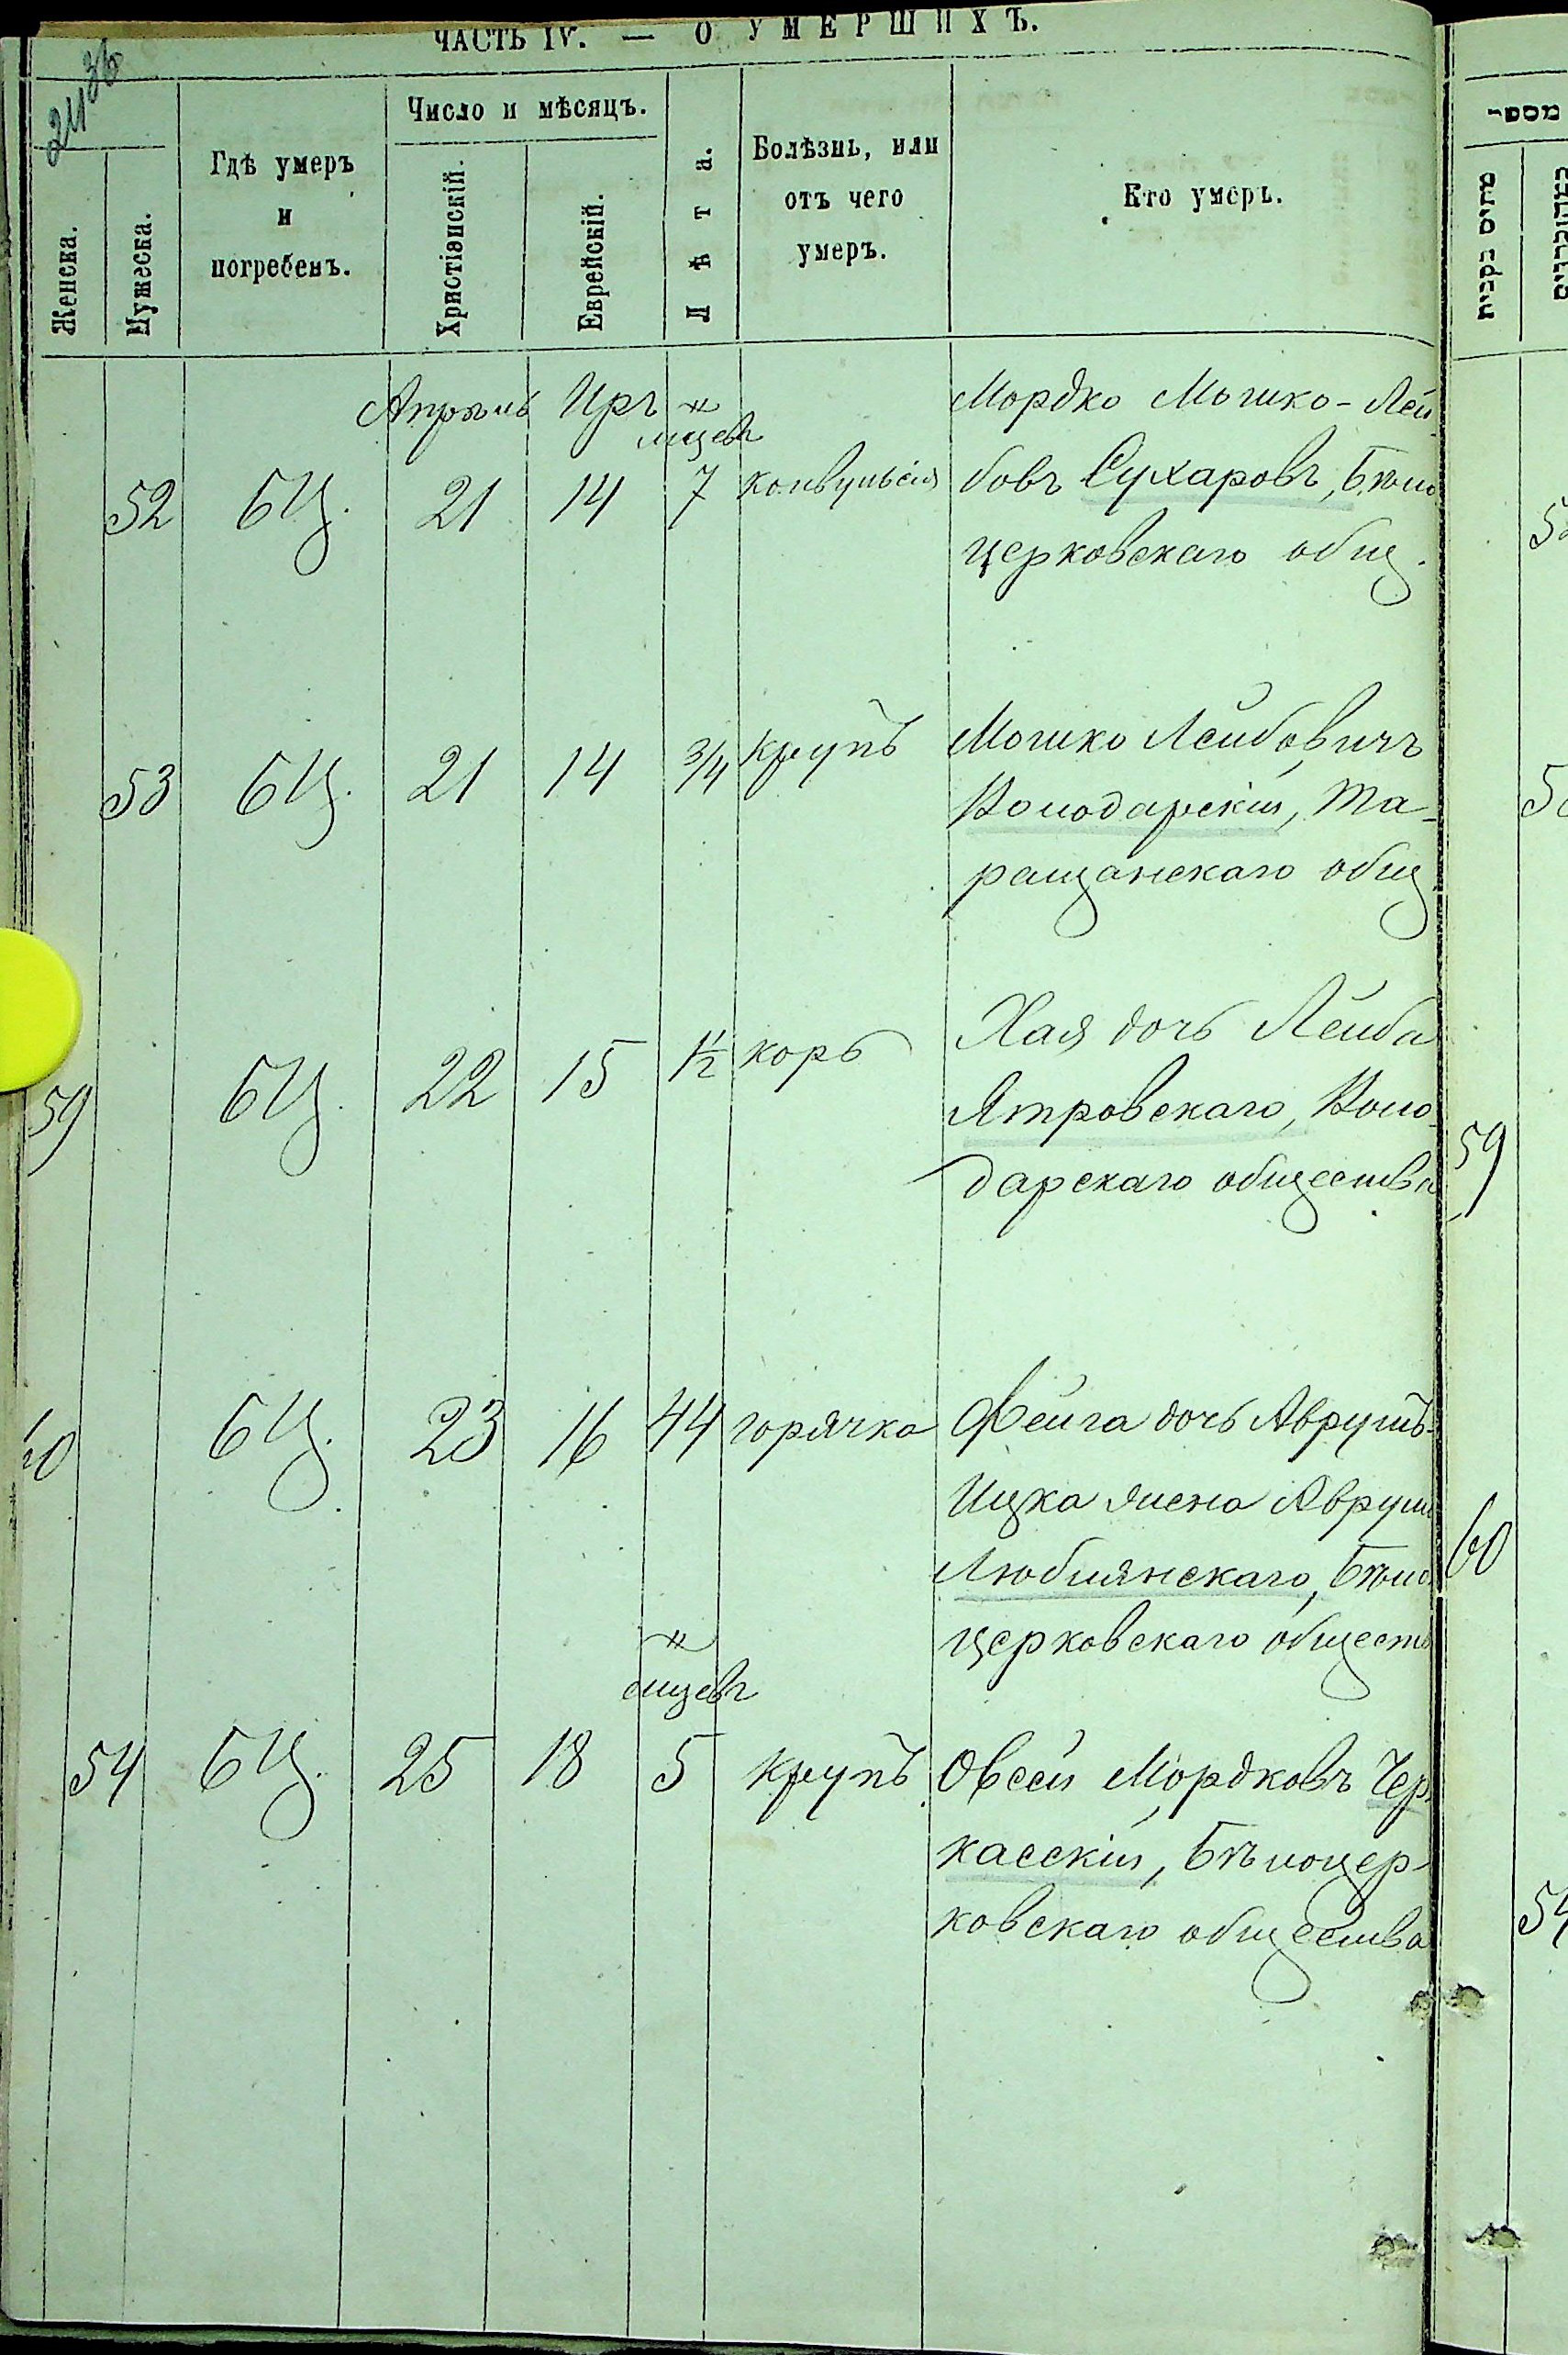 ЧАСТЬ IV. — О УМЕРШИХЪ.
36
Женска.
Мужеска.
Гдѣ умеръ
и
погребенъ.
Число и мѣсяцъ.
Христіанскій.
Еврейскій.
Лѣта.
Болѣзнь, или
отъ чего
умеръ.
Кто умеръ.
מספר
מתים נקבות
Апрѣль Иръ мцевъ
52 БЦ. 21 14 7 конвульсія Мордко Мошко-Лей
бовъ Сухаровъ, Бѣло
церковскаго общ.
53 БЦ. 21 14 3/4 крупъ Мошко Лейбовичъ
Володарскій, Та-
ращанскаго общ.
59 БЦ. 22 15 1 1/2 корь Хая дочь Лейба
Ятровскаго, Воло-
дарскаго общества
59
60 БЦ. 23 16 44 горячка Фейга дочь Аврумъ-
Ицка жена Аврум
Любиянскаго, Бѣло
церковскаго обществ
60
мцевъ
54 БЦ. 25 18 5 крупъ Овсей Мордковъ Чер-
касскій, Бѣлоцер-
ковскаго общества
54